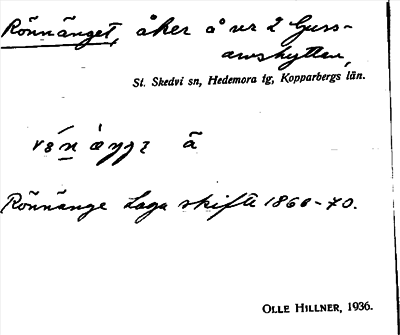 Rönnänget, åker å nr 2 Guss-
arvshyttan,
St. Skedvi sn, Hedemora tg, Kopparbergs län.
ā
Rönnänge Laga skifte 1860-70.
OLLE HILLNER, 1936.